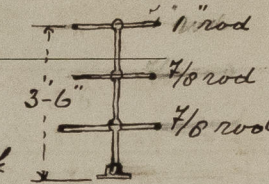 1" rod
7/8 rod
3'-6"
7/8 rod